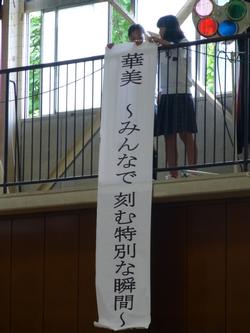 華美 ～みんなで 刻む特別な瞬間～